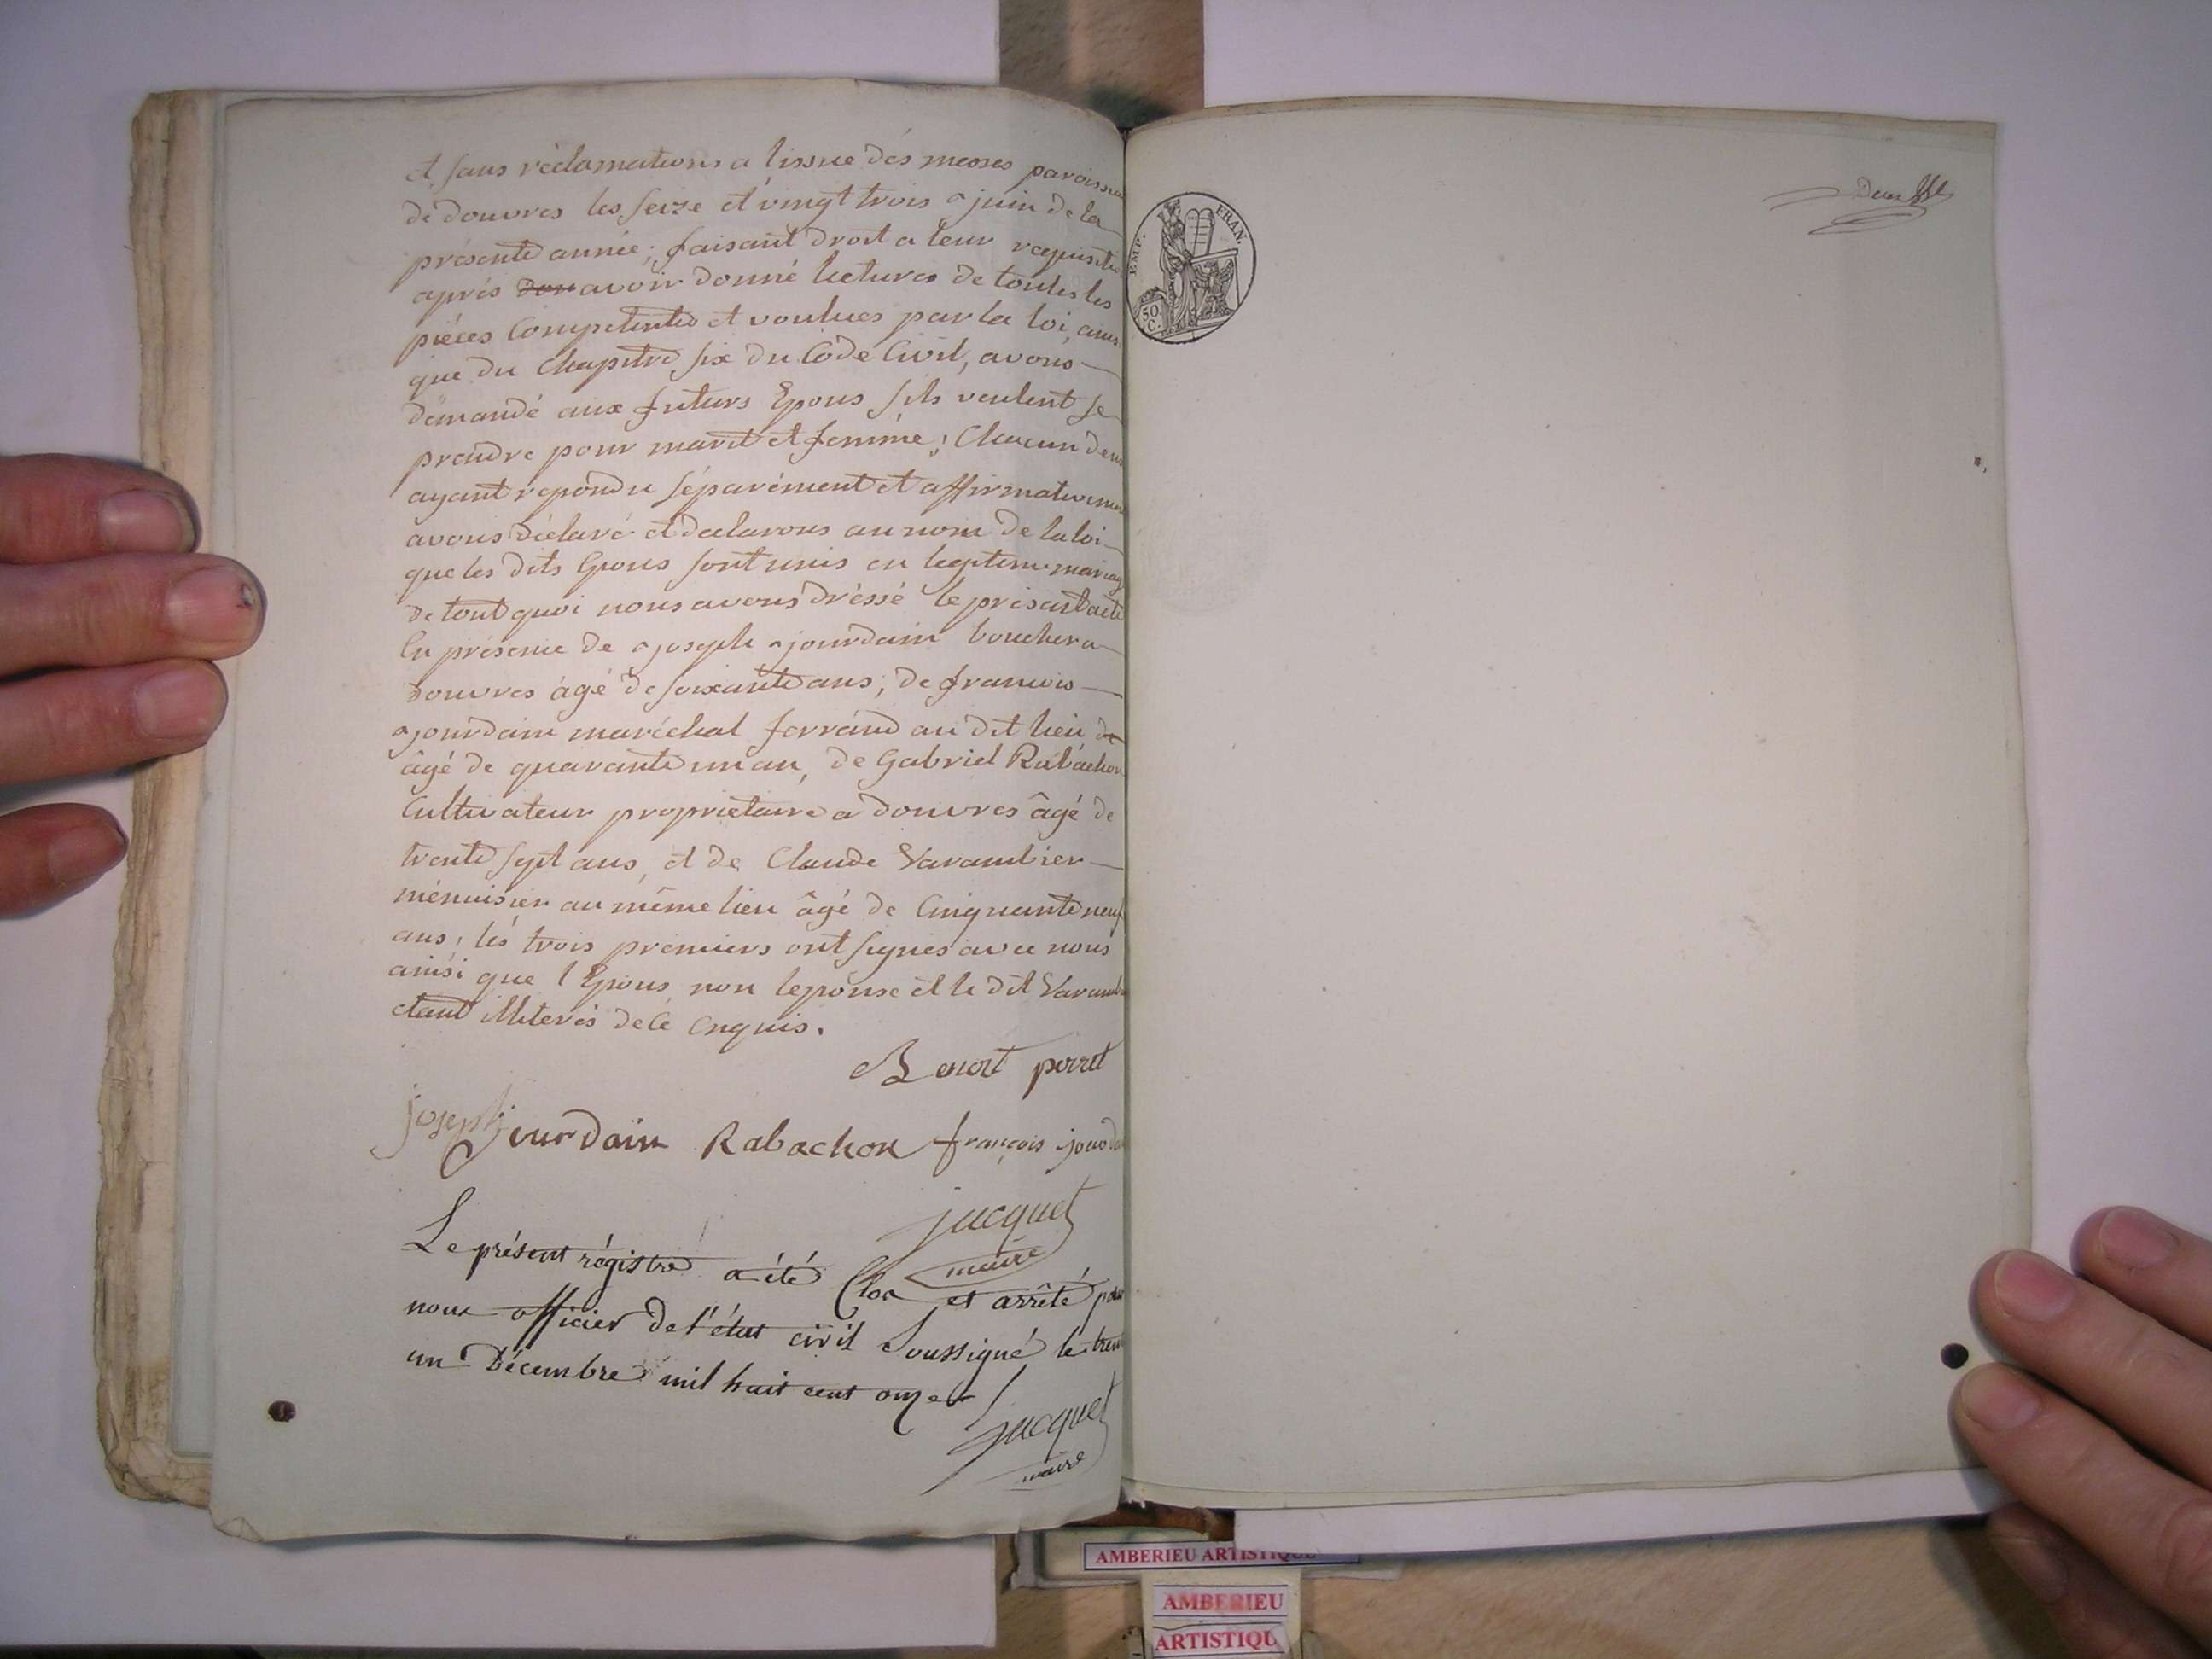 et sans réclamations a lissue dés messes paroissia
de douvres les seize et vingt trois juin de la
présente année; faisant droit a leur requisitio
aprés don avoir donné lectures de toutes les
piéces Competentes et voulues par la loi, ainsi
que du Chapitre six du Code Civil, avons
démandé aux futurs Epous s'ils veulent se
prendre pour marit et femme; Chacun deux
ayant repondu séparément et affirmativement
avons déclaré et declarons au nom de la loi
que les dits Epous sont unis en legitime mariag
de tout quoi nous avons dréssé le présent acte
En présence de joseph jourdain boucher a
douvres âgé de soixante ans; de francois
jourdain maréchal ferrand au dit lieu de
âgé de quarante un an, de Gabriel Rabachon
Cultivateur proprietaire a douvres âgé de
trente sept ans, et de Claude Varambier
ménuisier au même lieu âgé de Cinquante neuf
ans, lés trois prémiers ont signés avec nous
ainsi que l'Epous non lepouse et le dit Varamb
étant illiterés de ce Enquis.
Benoit porret
joseph jourdain Rabachon françois jourda
jacquet
maire
Le présent régistre a été Clos et arrêté par
nous officier de l'état civil Soussigné le trent
un Décembre mil huit cent onze
jacquet
maire
EMP. FRAN.
50
C.
AMBERIEU ARTISTIQUE
AMBERIEU
ARTISTIQU